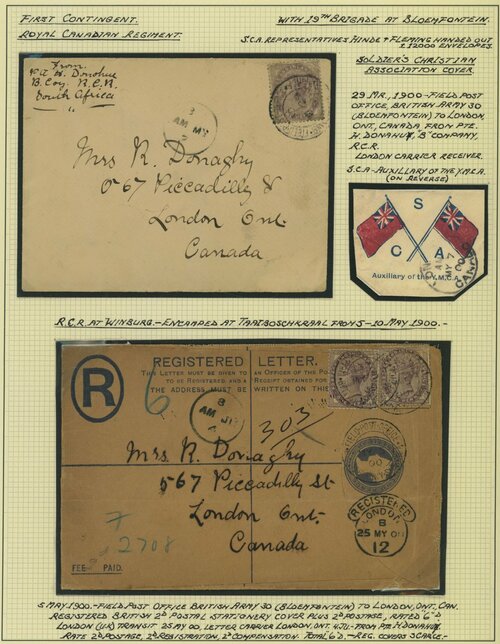 FIRST CONTINGENT.
ROYAL CANADIAN REGIMENT.
WITH 19TH BRIGADE AT BLOEMFONTEIN.
S.C.A. REPRESENTATIVES HINDE & FLEMING HANDED OUT
± 12000 ENVELOPES.
SOLDIER'S CHRISTIAN
ASSOCIATION COVER
29 MR, 1900 - FIELD POST
OFFICE, BRITISH ARMY 30
(BLOEMFONTEIN) TO LONDON,
ONT, CANADA, FROM PTE.
H. DONAHUE, "B" COMPANY,
R.C.R.
LONDON CARRIER RECEIVER.
S.C.A - AUXILIARY OF THE Y.M.C.A.
(ON REVERSE)
From
H. Donohue
B. Coy. R.C.R.
South Africa
AM MY
Mrs R. Donaghy
567 Piccadilly St
London Ont.
Canada
S
C A
Auxiliary of the Y.M.C.A.
AM
MY 7
00
CANADA
R.C.R. AT WINBURG. - ENCAMPED AT TAAIBOSCHKRAAL FROM 5 - 10 MAY 1900. -
R
REGISTERED LETTER.
THIS LETTER MUST BE GIVEN TO AN OFFICER OF THE PO
TO BE REGISTERED, AND A RECEIPT OBTAINED FOR
THE ADDRESS MUST BE WRITTEN ON THIS
6
8
AM JU
4
303
Mrs. R. Donaghy
567 Piccadilly St
London Ont.
Canada
7
2708
FEE PAID.
REGISTERED
LONDON
8
25 MY 00
12
5 MAY 1900. - FIELD POST OFFICE BRITISH ARMY 30 (BLOEMFONTEIN) TO LONDON, ONT. CAN.
REGISTERED BRITISH 2D POSTAL STATIONERY COVER PLUS 2D POSTAGE, RATED 6"-D
LONDON (UK) TRANSIT 25 MAY 00, LETTER CARRIER LONDON, ONT. 4 JU - FROM PTE H. DONAHUE.
RATE 2D POSTAGE, 2D REGISTRATION, 2D COMPENSATION. TOTAL 6D - REG. COVERS SCARCE. -